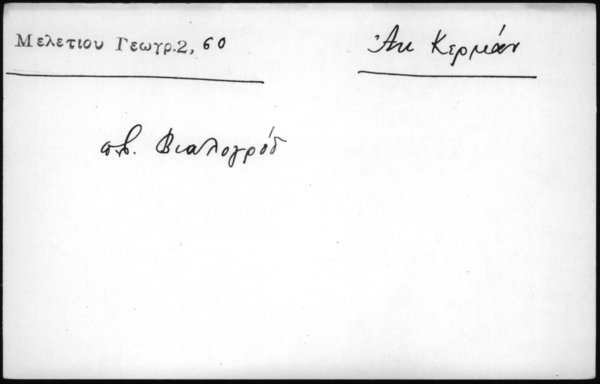 Μελετίου Γεωγρ.2, 60
Ἀκ Κερμάν
πβ. Βιαλογρόδ